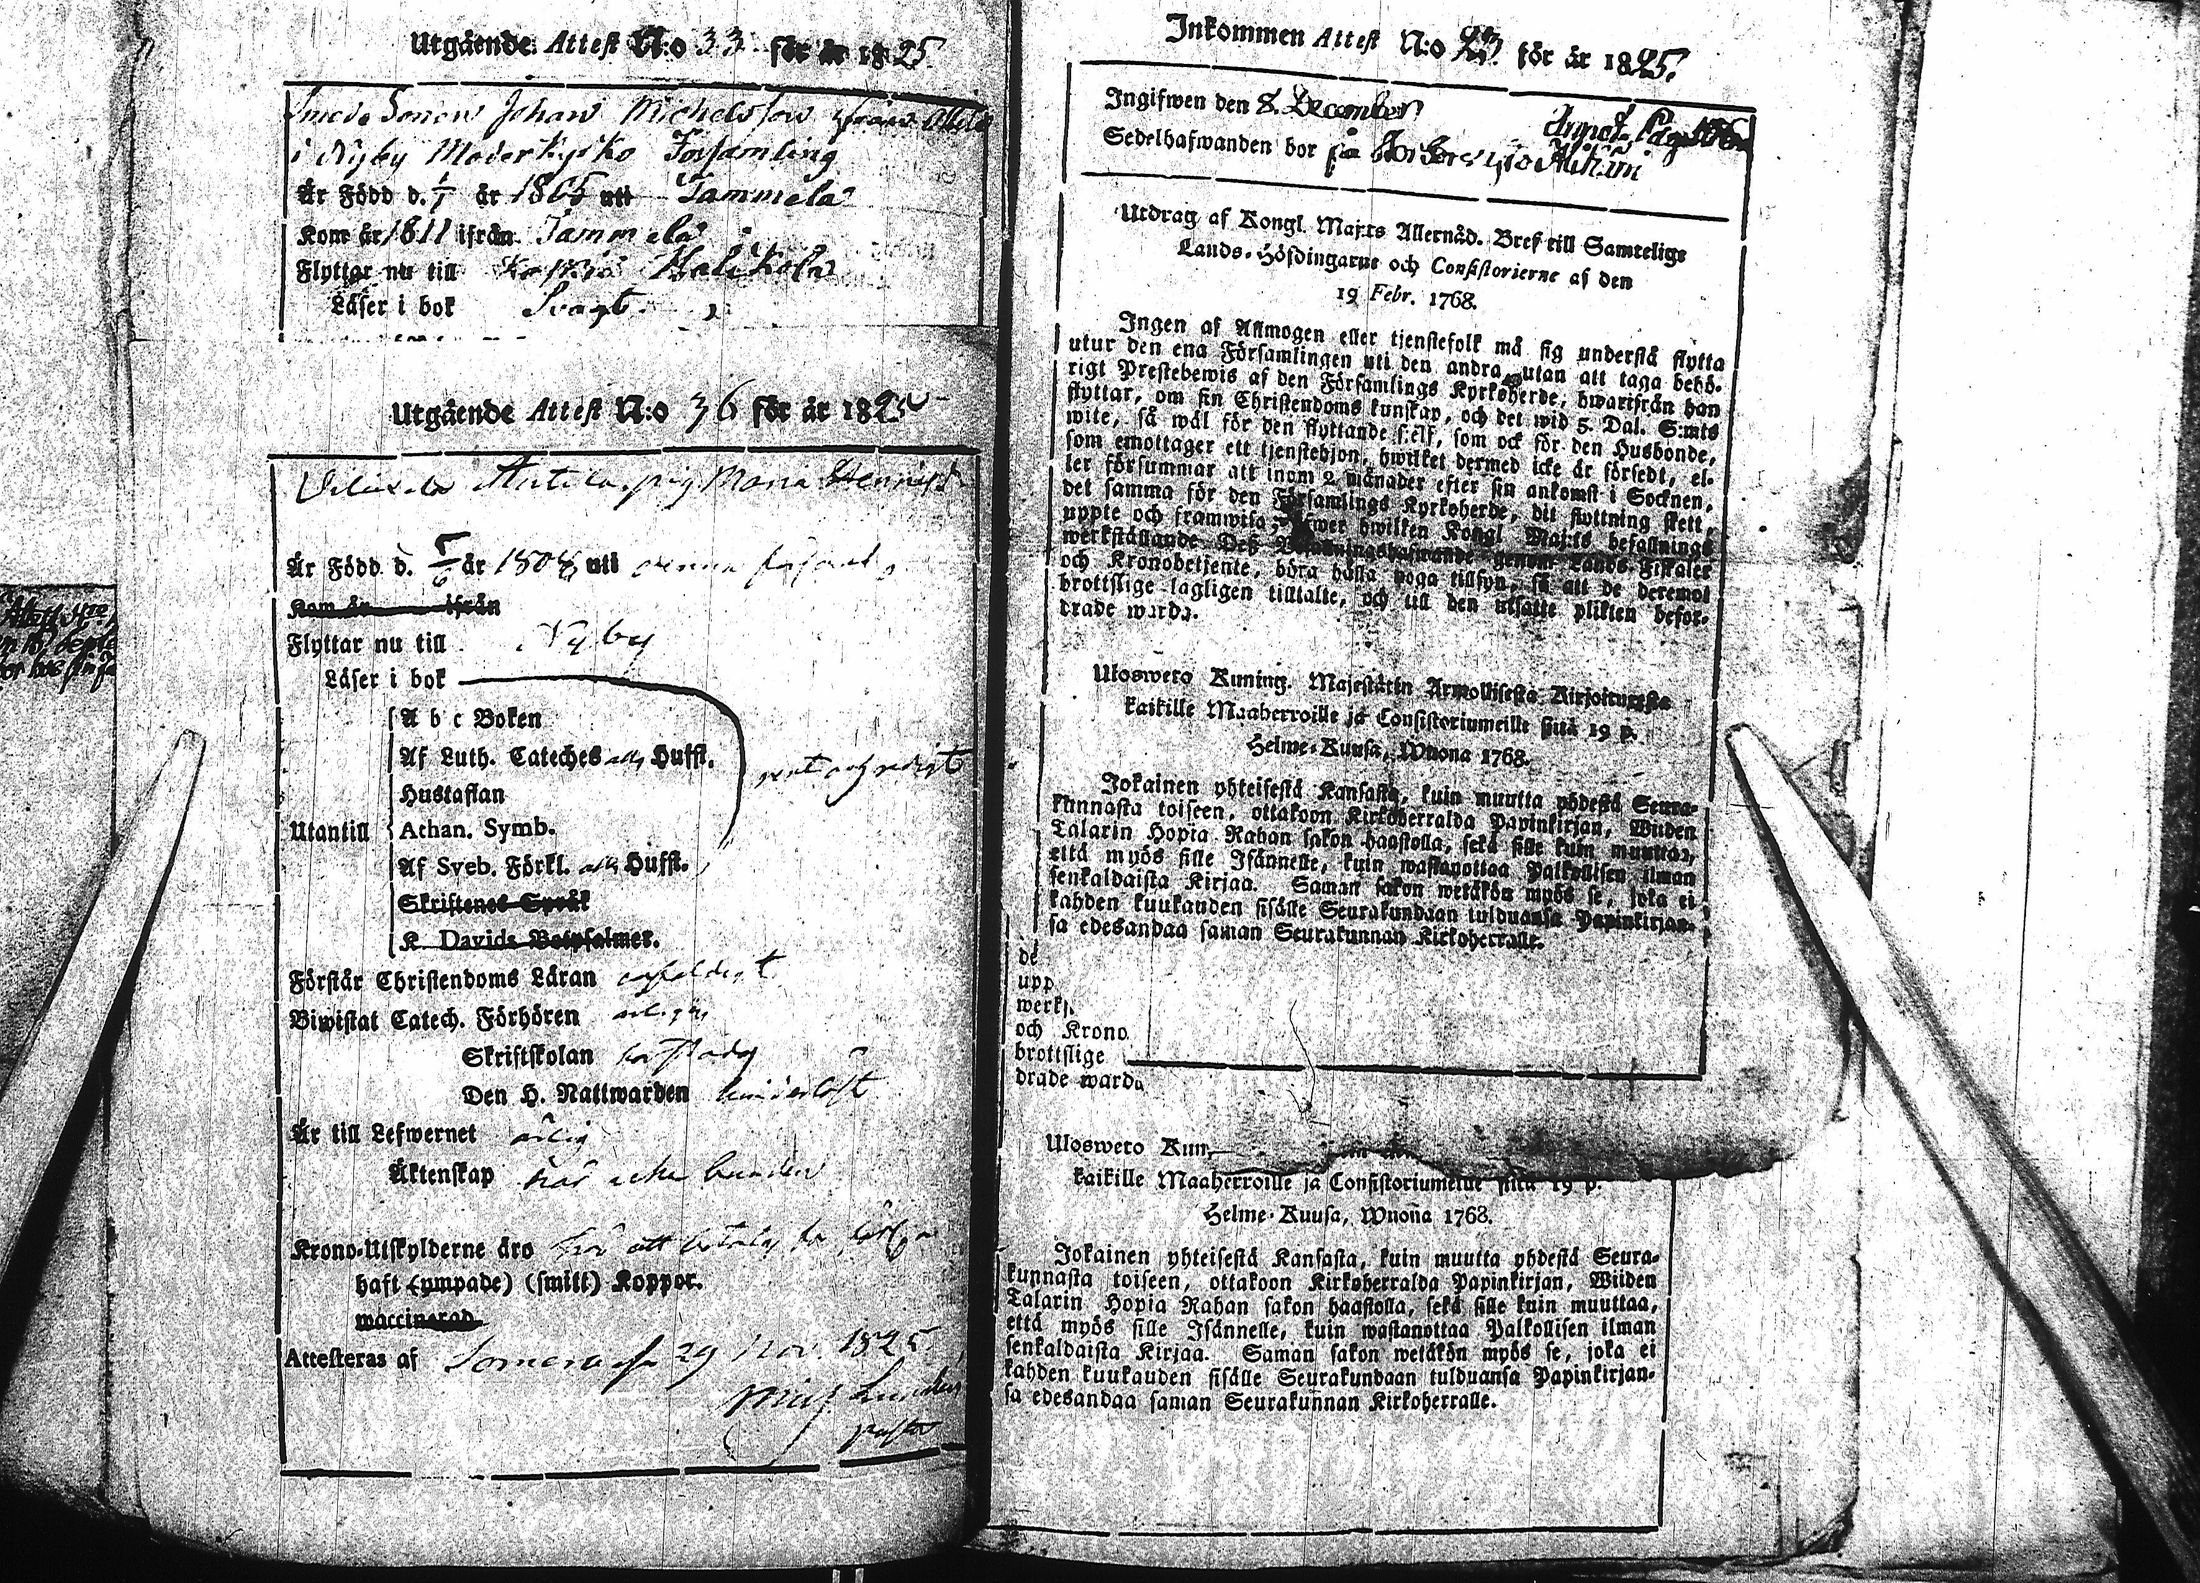 Utgående Attest N:o 33 för år 1825.
Smeds Sonen Johan Michelsson ifrån
i Nyby Moderkyrko Församling
Är Född d. 1/1 år 1805 uti Tammela
Kom år 1811 ifrån Tammela
Flyttar nu till Halikola
Läser i bok Svagt
Utgående Attest N:o 36 för år 1825
Antila pig Maria Henrichsd
Är Född d. 5/6 år 1808 uti denna församl
Kom år ifrån
Flyttar nu till Nyby
Läser i bok
A b c Boken
Af Luth. Cateches Hufst.
Hustaflan
Utantill Athan. Symb.
Af Sveb. Förkl. Hufst.
Skriftenes Språk
K. Davids Botpsalmer.
Förstår Christendoms Läran enfaldigt
Biwistat Catech. Förhören årligen
Skriftskolan
Den H. Nattwarden hinderlöst
Är till Lefwernet ärlig
Äktenskap här icke bunden
Krono-Utskylderne äro här att betala
haft (ympade) (smitt) Koppor.
waccinerad
Attesteras af Somero d. 29 Nov. 1825
Pastor
Inkommen Attest N:o 23 för år 1825.
Ingifwen den 8 December Annot. Pag
Sedelhafwanden bor på
Utdrag af Kongl. Maj:ts Allernåd. Bref till Samtelige
Lands-Höfdingarne och Consistorierne af den
19 Febr. 1768.
Ingen af Allmogen eller tjenstefolk må sig understå flytta
utur den ena Församlingen uti den andra, utan att taga behö-
rigt Prestebewis af den Församlings Kyrkoherde, hwarifrån han
flyttar, om sin Christendoms kunskap, och det wid 5. Dal. S:mts
wite, så wäl för den flyttande sielf, som ock för den Husbonde,
som emottager ett tjenstehjon, hwilket dermed icke är försedt, el-
ler försummar att inom 2 månader efter sin ankomst i Socknen,
det samma för den Församlings Kyrkoherde, dit flyttning skett,
uppte och framwisa; öfwer hwilken Kongl Maj:ts befallnings
werkställande Dess Befallningshafwande genom Lands-Fiskaler
och Kronobetjente, böra hålla noga tillsyn, så att de deremot
brottslige lagligen tilltalte, och till den utsatte plikten befor-
drade warda.
Uloswero Kuning. Majestätin Armollisesta Kirjoituxesta
kaikille Maaherroille ja Consistoriumeille siitä 19 p.
Helme-Kuusa, Wuona 1768.
Jokainen yhteisestä Kansasta, kuin muutta yhdestä Seura-
kunnasta toiseen, ottakoon Kirkoherralda Papinkirjan, Wiiden
Talarin Hopia Rahan sakon haastolla, sekä sille kuin muuttaa,
että myös sille Isännelle, kuin wastanottaa Palkollisen ilman
senkaldaista Kirjaa. Saman sakon wetäkön myös se, joka ei
kahden kuukauden sisälle Seurakundaan tulduansa Papinkirjan-
sa edesandaa saman Seurakunnan Kirkoherralle.
de
upp
werks
och Krono
brottslige
drade warda
Uloswero Kun
kaikille Maaherroille ja Consistoriumeille siitä 19 p.
Helme-Kuusa, Wuona 1768.
Jokainen yhteisestä Kansasta, kuin muutta yhdestä Seura-
kunnasta toiseen, ottakoon Kirkoherralda Papinkirjan, Wiiden
Talarin Hopia Rahan sakon haastolla, sekä sille kuin muuttaa,
että myös sille Isännelle, kuin wastanottaa Palkollisen ilman
senkaldaista Kirjaa. Saman sakon wetäkön myös se, joka ei
kahden kuukauden sisälle Seurakundaan tulduansa Papinkirjan-
sa edesandaa saman Seurakunnan Kirkoherralle.